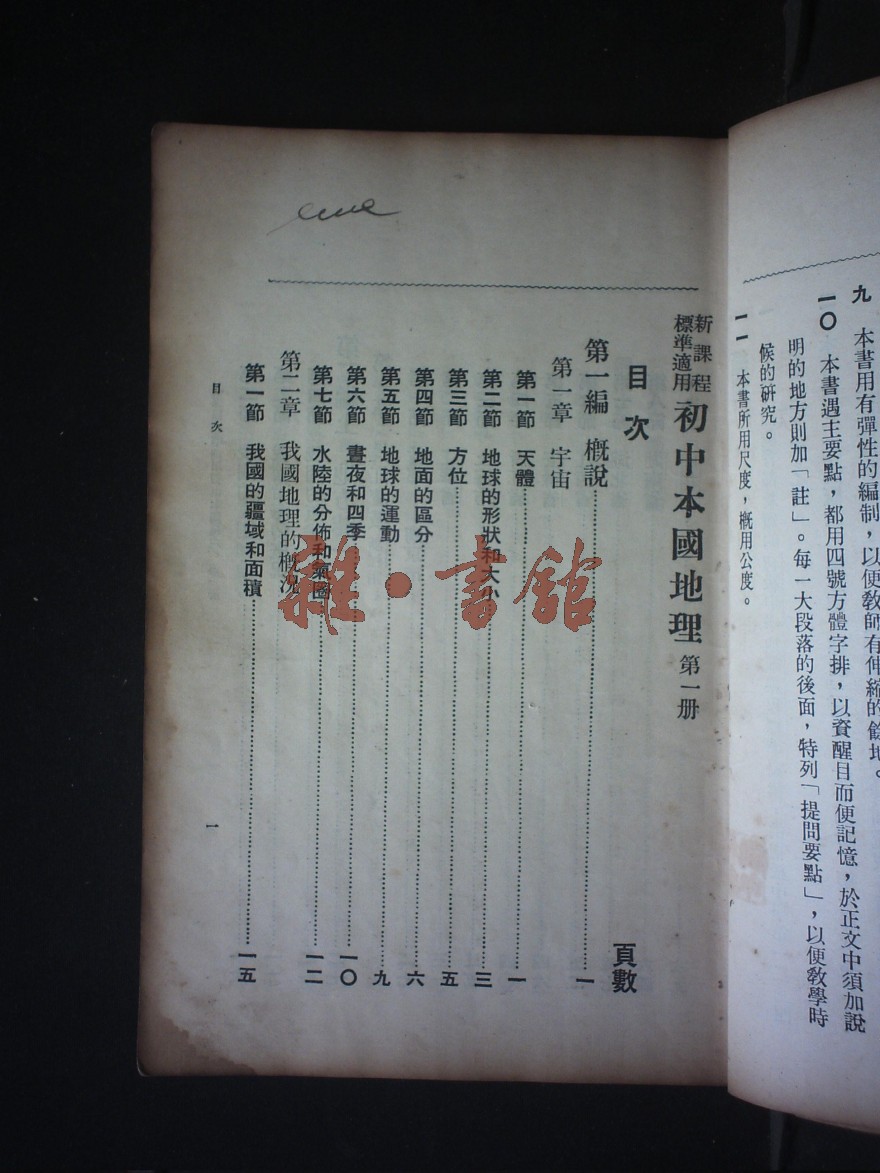 九　本書用有彈性的編制，以便教師有伸縮的餘地。
一〇　本書遇主要點，都用四號方體字排，以資醒目而便記憶，於正文中須加說
明的地方則加「註」。每一大段落的後面，特列「提問要點」，以便教學時
候的研究。
一一　本書所用尺度，概用公度。
新課程
標準適用
初中本國地理 第一册
目次
頁數
第一編　概說 一
第一章　宇宙
第一節　天體 一
第二節　地球的形狀和大小 三
第三節　方位 五
第四節　地面的區分 六
第五節　地球的運動 九
第六節　晝夜和四季 一〇
第七節　水陸的分佈和氣圈 一二
第二章　我國地理的概況
第一節　我國的疆域和面積 一五
目次
一
雜·書館